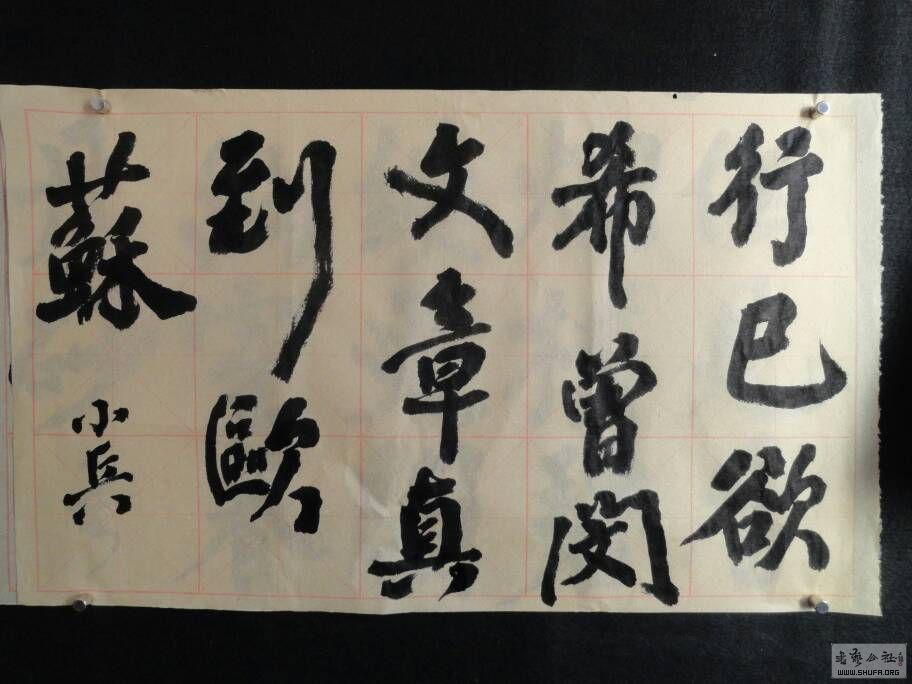 行巳欲
希曾閔
文章真
到歐
蘇
小兵
書藝公社
WWW.SHUFA.ORG